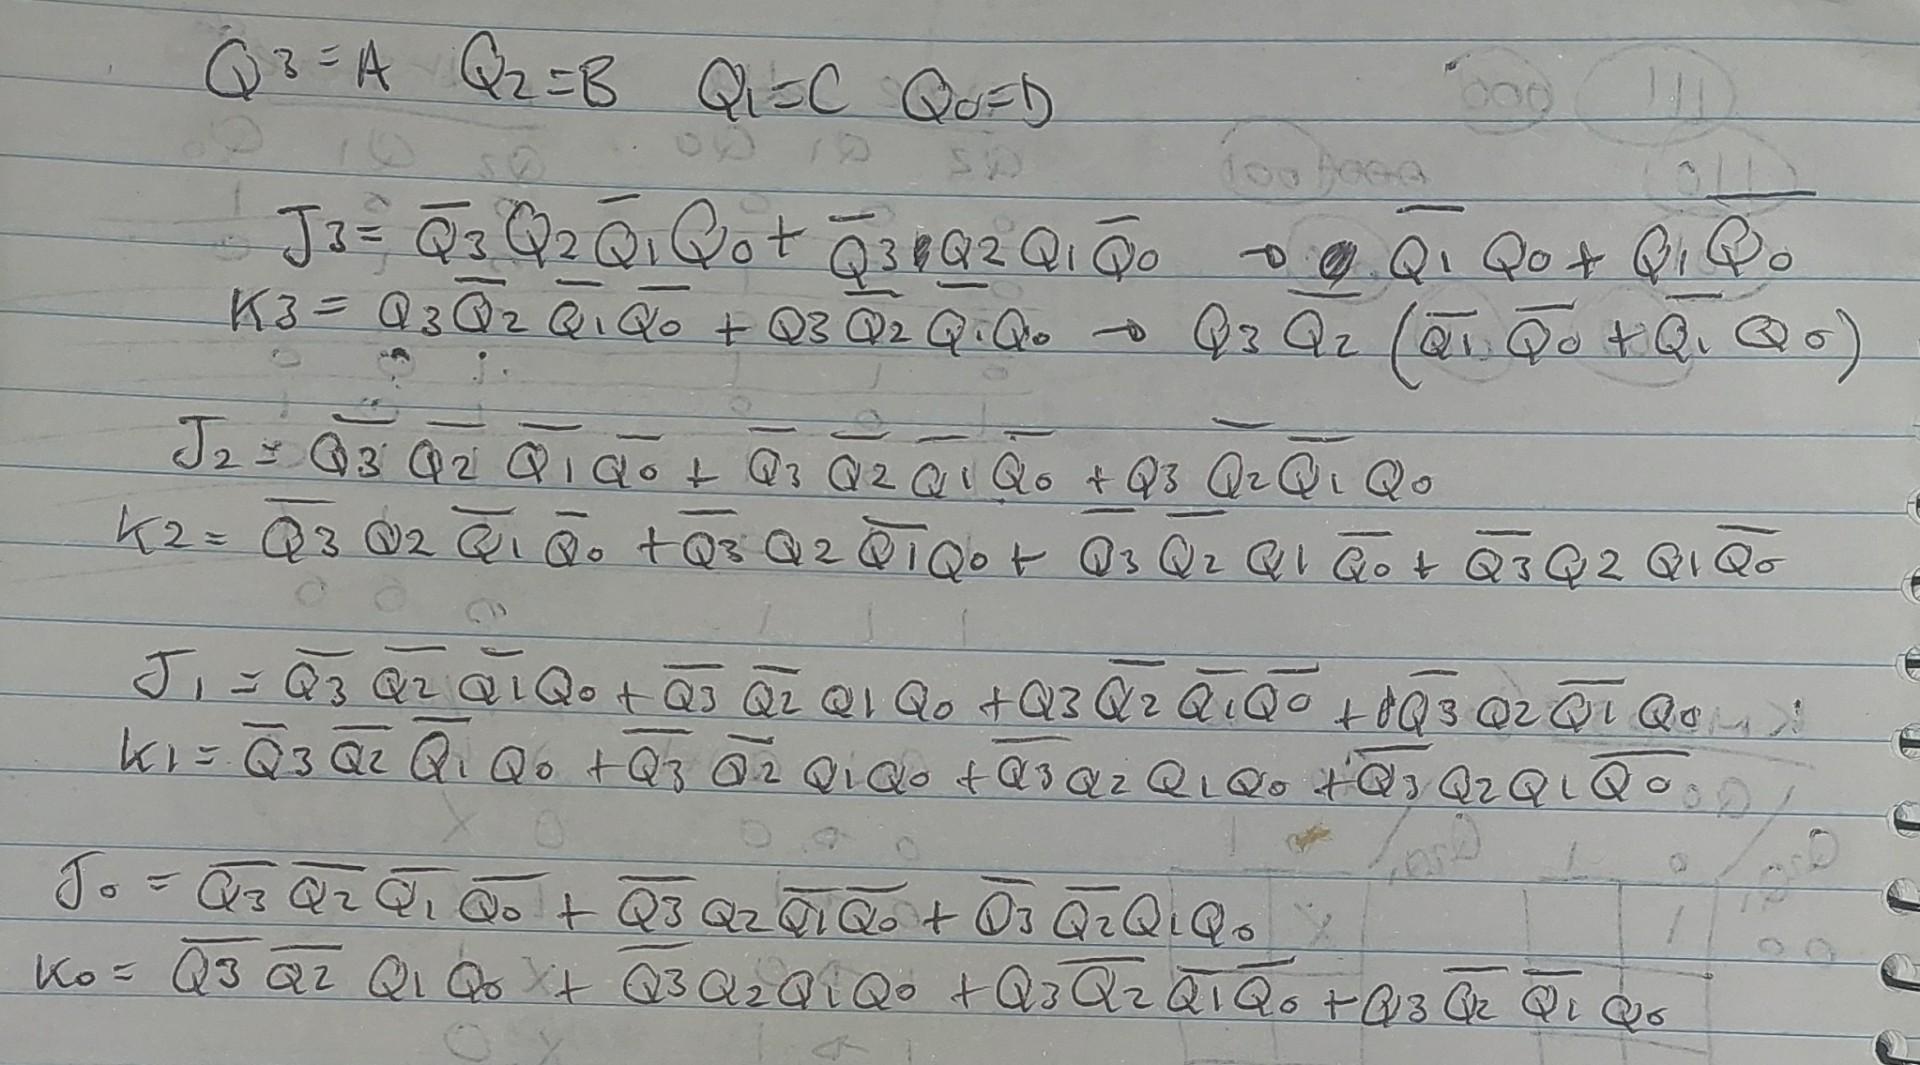 Q3=A Q2=B Q1=C Q0=D
J3= Q̅3 Q2 Q̅1 Q0 + Q̅3 Q2 Q1 Q̅0 → Q̅1 Q0 + Q1 Q̅0
K3= Q3 Q̅2 Q̅1 Q̅0 + Q3 Q̅2 Q̅1 Q0 → Q3 Q̅2 (Q̅1 Q̅0 + Q̅1 Q0)
J2= Q̅3 Q̅2 Q̅1 Q̅0 + Q̅3 Q̅2 Q̅1 Q̅0 + Q3 Q̅2 Q̅1 Q0
K2= Q̅3 Q2 Q̅1 Q̅0 + Q̅3 Q2 Q̅1 Q0 + Q̅3 Q̅2 Q1 Q̅0 + Q̅3 Q2 Q1 Q̅0
J1= Q̅3 Q̅2 Q̅1 Q0 + Q̅3 Q̅2 Q1 Q0 + Q3 Q̅2 Q̅1 Q̅0 + Q̅3 Q2 Q̅1 Q0
K1= Q̅3 Q̅2 Q̅1 Q0 + Q̅3 Q̅2 Q1 Q0 + Q̅3 Q2 Q1 Q0 + Q̅3 Q2 Q1 Q̅0
J0= Q̅3 Q̅2 Q̅1 Q̅0 + Q̅3 Q2 Q̅1 Q̅0 + Q̅3 Q̅2 Q1 Q0
K0= Q̅3 Q̅2 Q1 Q0 + Q̅3 Q2 Q1 Q0 + Q3 Q̅2 Q̅1 Q̅0 + Q3 Q̅2 Q̅1 Q0